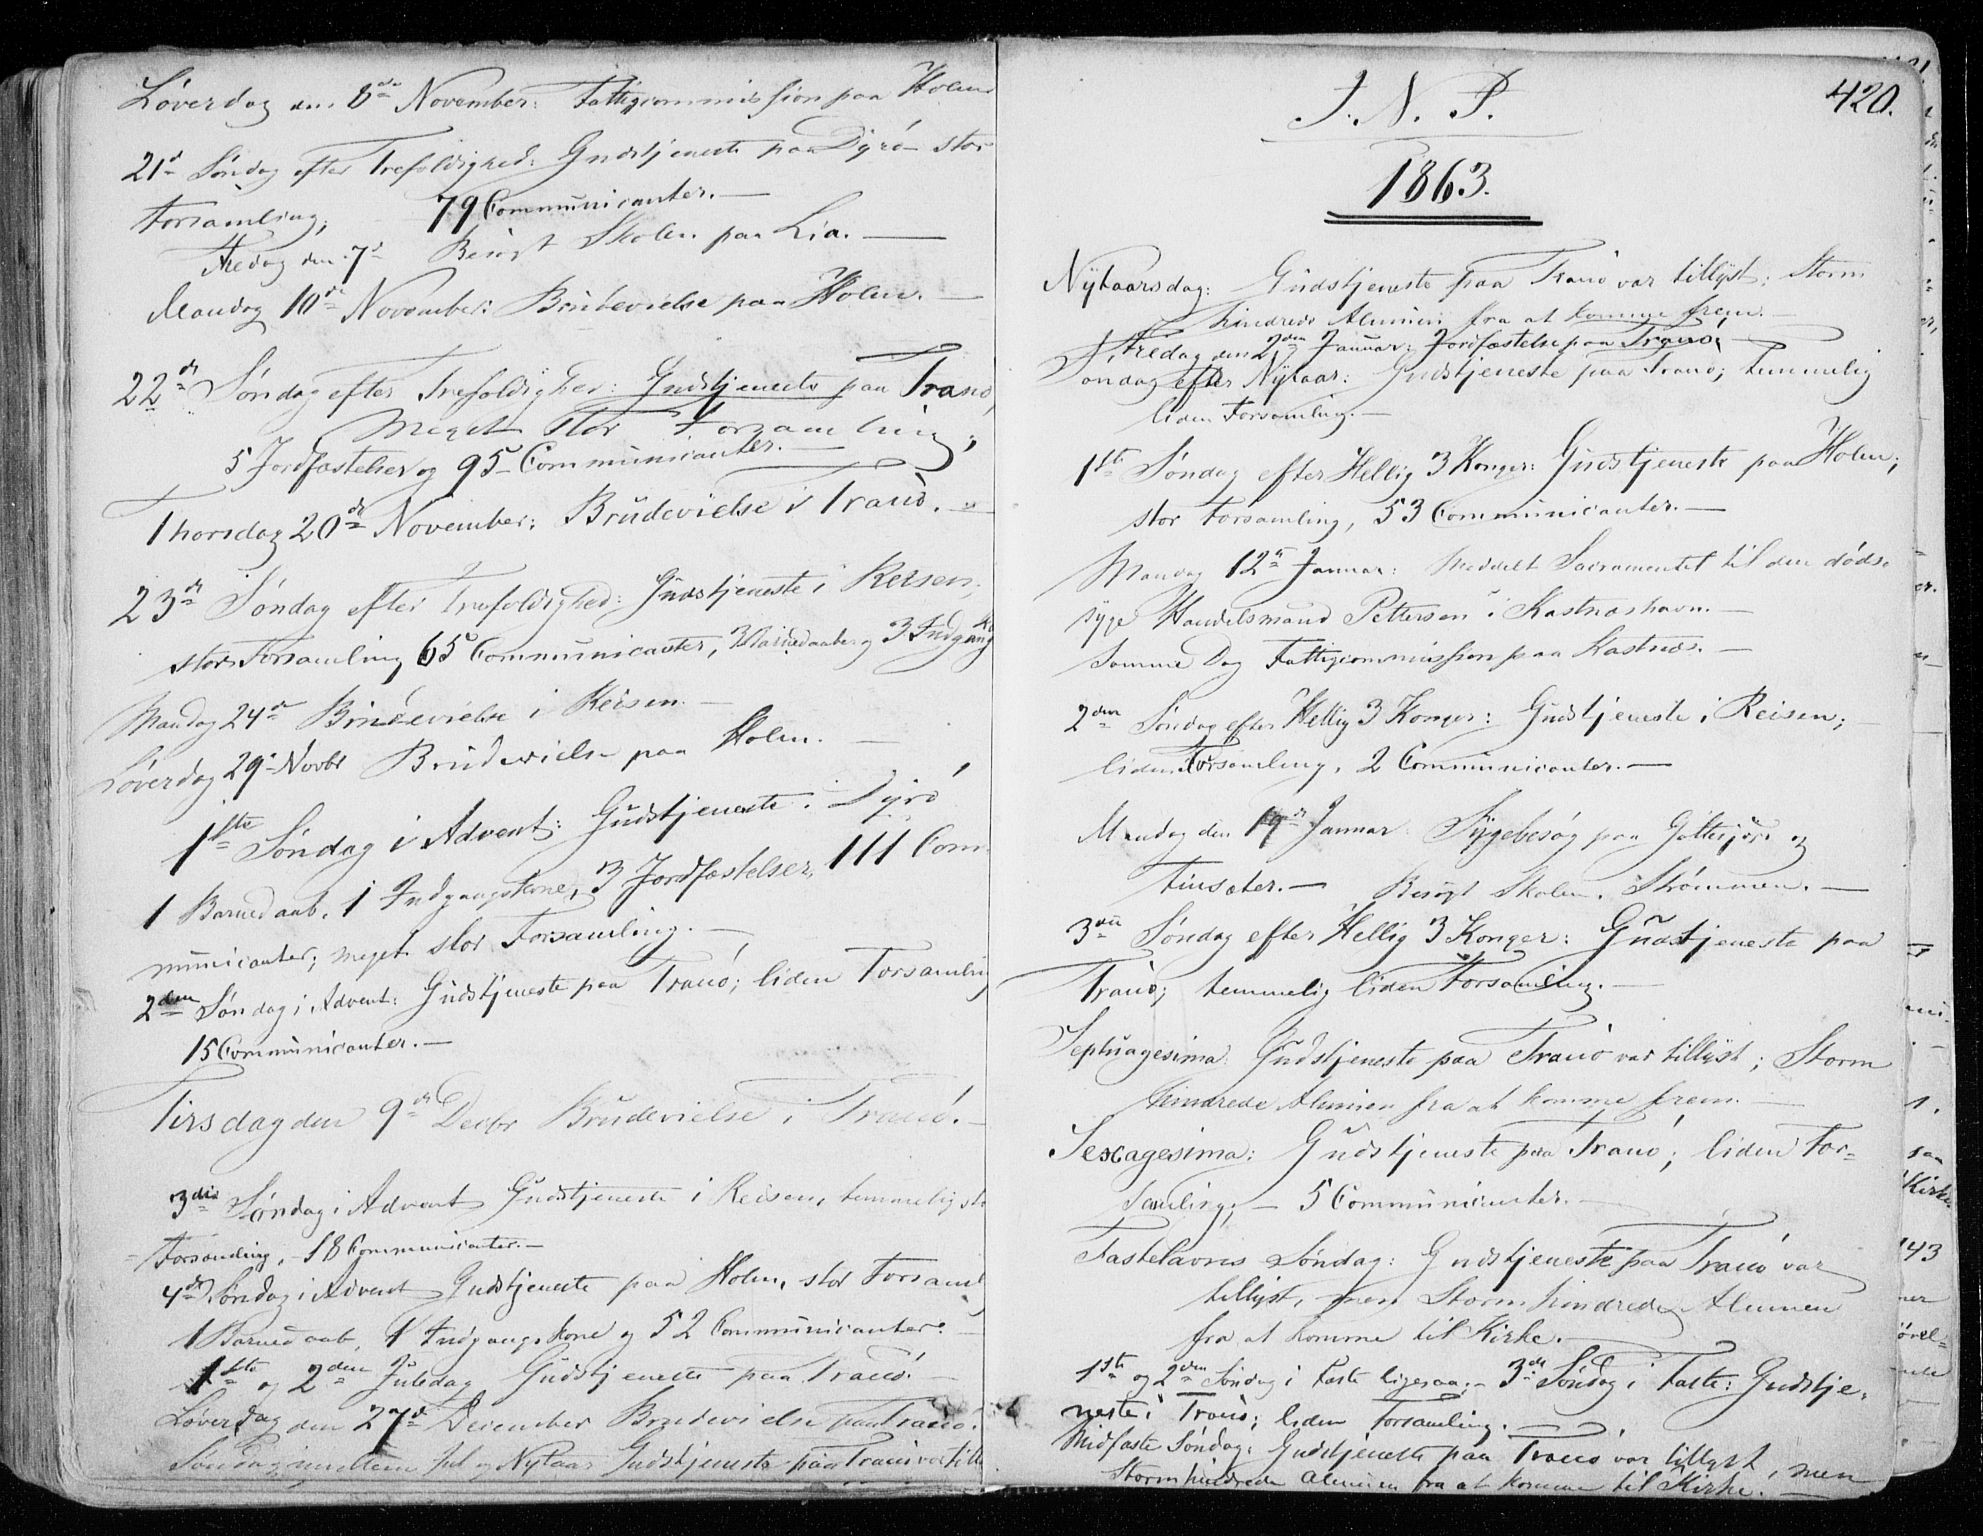 Løverdag den 8de November: Fattigcommission paa Holm
21de Søndag efter Trefoldighed: Gudstjeneste paa Dyrø stor
Forsamling, 79 Communicanter. —
Fredag den 7de Besøgt Skolen paa Lia. —
Mandag 10de November: Brudevielse paa Holm. —
22de Søndag efter Trefoldighed: Gudstjeneste paa Tranø,
Meget stor Forsamling,
5 Jordfæstelser og 95 Communicanter. —
Thorsdag 20de November: Brudevielse i Tranø. —
23de Søndag efter Trefoldighed: Gudstjeneste i Reisen,
stor Forsamling 65 Communicanter, 3 Barnedaab og 3 Indgang
Mandag 24de Brudevielse i Reisen. —
Løverdag 29de Novbr Brudevielse paa Holm. —
1ste Søndag i Advent: Gudstjeneste i Dyrø
1 Barnedaab, 1 Indgangskone, 3 Jordfæstelser, 111 Com-
municanter; meget stor Forsamling. —
2den Søndag i Advent: Gudstjeneste paa Tranø; liden Forsamling
15 Communicanter. —
Tirsdag den 9de Decbr Brudevielse i Tranø. —
3die Søndag i Advent Gudstjeneste i Reisen, temmelig sto
Forsamling, 18 Communicanter. —
4de Søndag i Advent Gudstjeneste paa Holm, stor Forsaml
1 Barnedaab, 1 Indgangskone og 52 Communicanter. —
1ste og 2den Juledag Gudstjeneste paa Tranø. —
Løverdag den 27de December Brudevielse paa Tranø.
Søndag imellem Jul og Nytaar Gudstjeneste paa Tranø var till
420.
I. N. J.
1863.
Nytaarsdag: Gudstjeneste paa Tranø var tillyst; Storm
hindrede Almuen fra at komme frem. —
Fredag den 2den Januar: Jordfæstelse paa Tranø. —
Søndag efter Nytaar: Gudstjeneste paa Tranø; temmelig
liden Forsamling. —
1ste Søndag efter Hellig 3 Konger: Gudstjeneste paa Holm;
stor Forsamling, 53 Communicanter. —
Mandag 12te Januar: Meddelt Sacramentet til den døds-
syge Handelsmand Pettersen i Kastnæshavn. —
Samme Dag Fattigcommission paa Kastnæs. —
2den Søndag efter Hellig 3 Konger: Gudstjeneste i Reisen;
liden Forsamling, 2 Communicanter. —
Mandag den 19de Januar Sygebesøg paa og
Finsæter. — Besøgt Skolen i Strømmen. —
3die Søndag efter Hellig 3 Konger: Gudstjeneste paa
Tranø; temmelig liden Forsamling. —
Septuagesima: Gudstjeneste paa Tranø var tillyst; Storm
hindrede Almuen fra at komme frem. —
Sexagesima: Gudstjeneste paa Tranø; liden For-
samling; — 5 Communicanter. —
Fastelavns Søndag: Gudstjeneste paa Tranø var
tillyst, men Storm hindrede Almuen
fra at komme til Kirke. —
1ste og 2den Søndag i Faste ligesaa; — 3die Søndag i Faste: Gudstje-
neste i Tranø; liden Forsamling. —
Midfaste Søndag: Gudstjeneste paa Tranø var tillyst, men
Storm hindrede Almuen fra at komme til Kirke. —